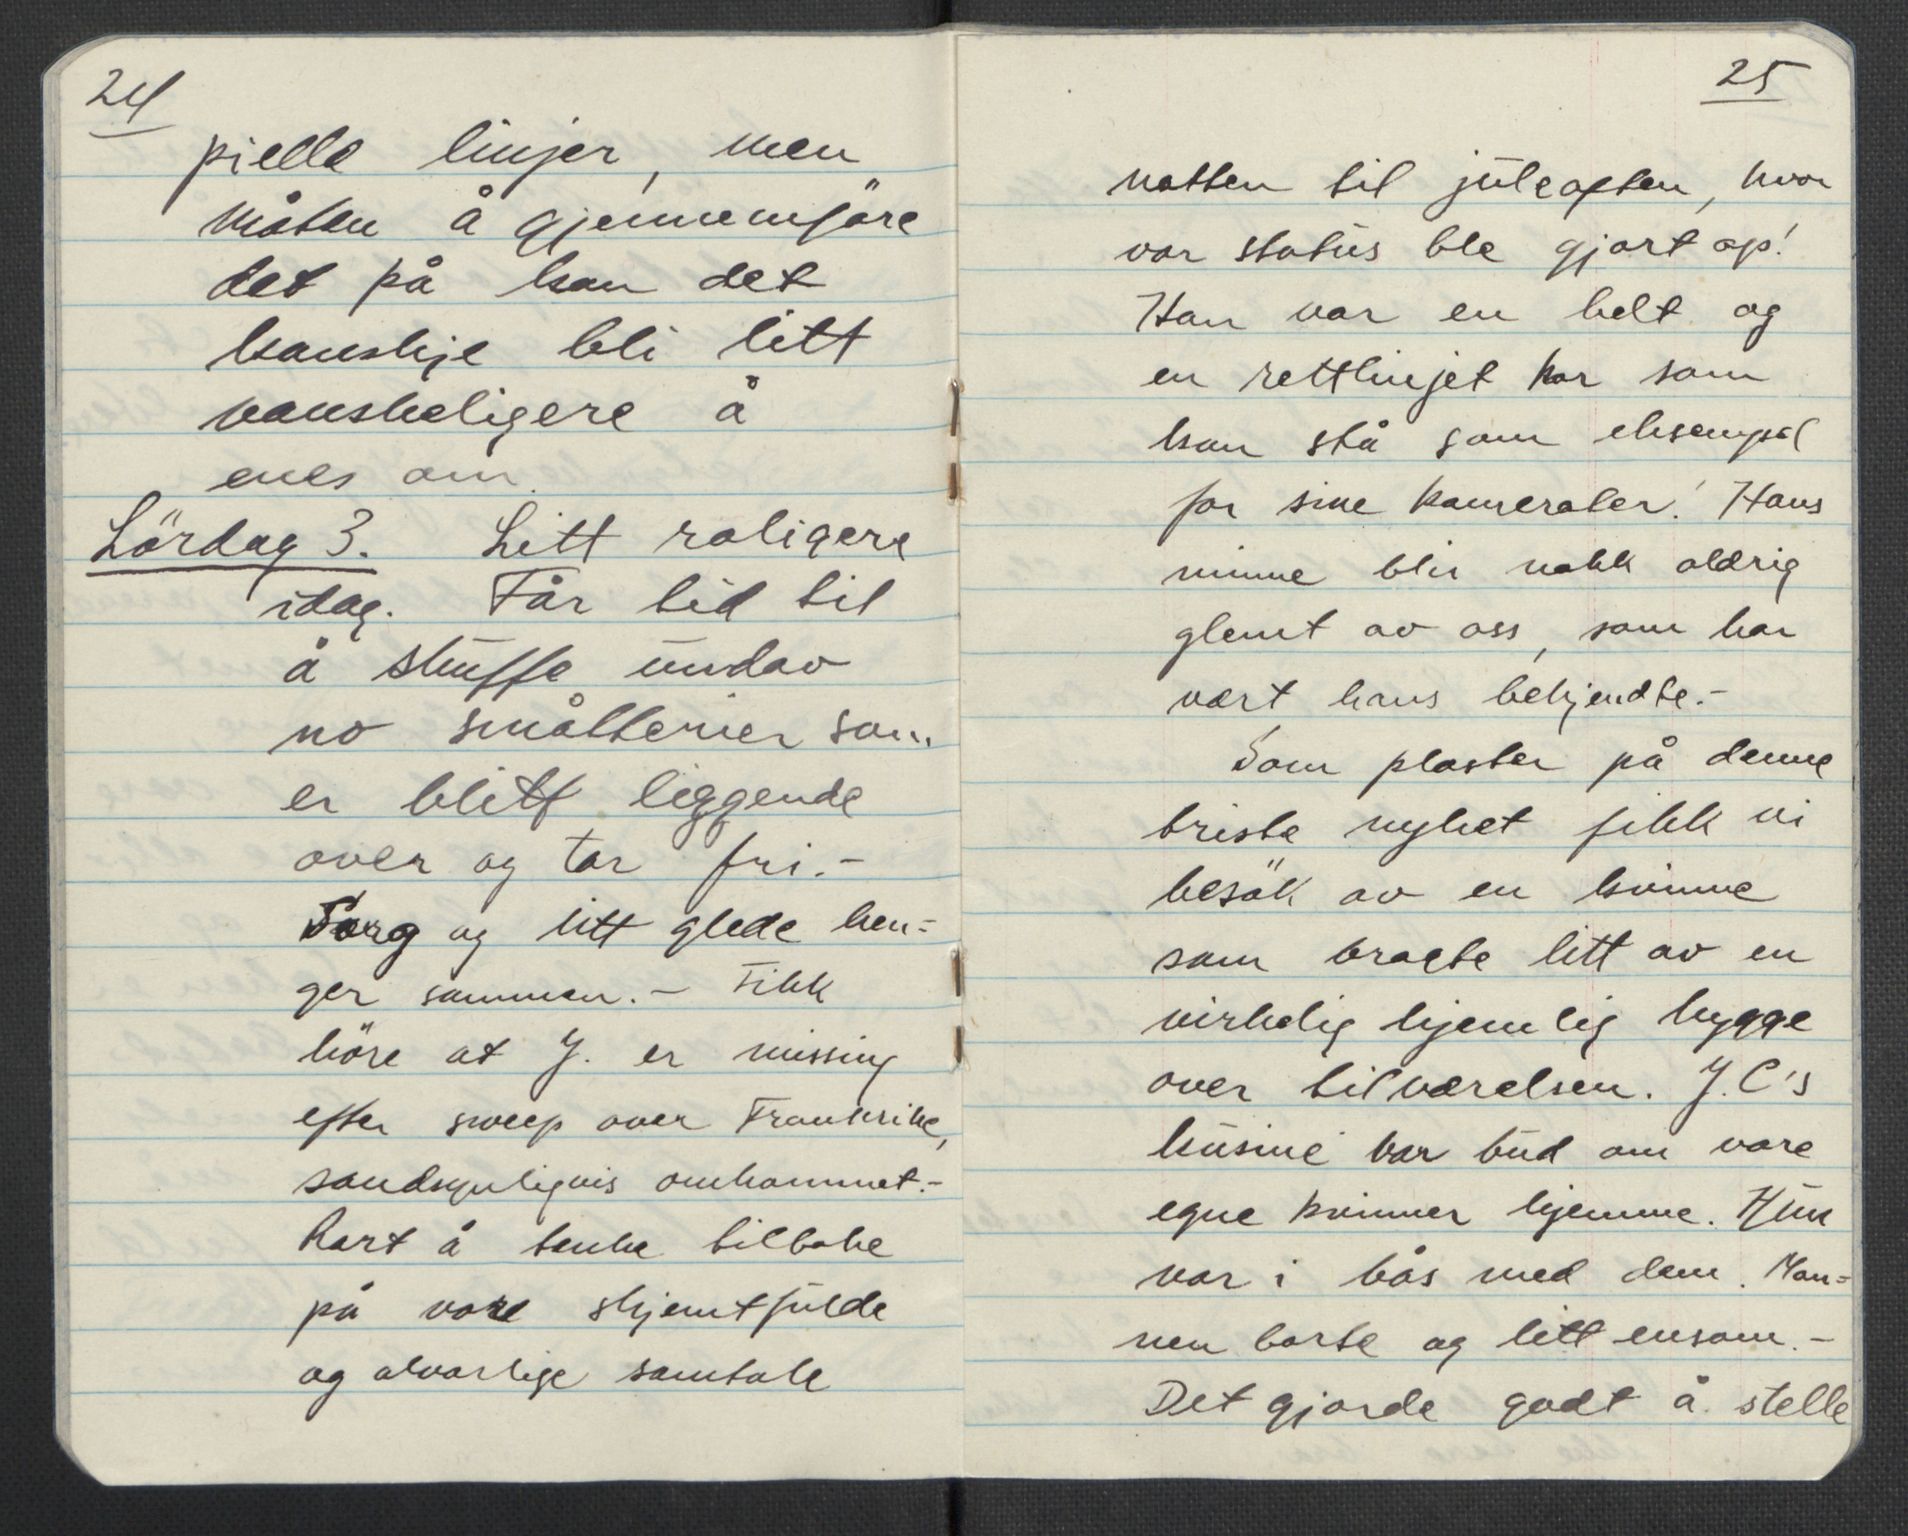 24
pielle linjer, men
måten å gjennemføre
det på kan det
kanskje bli litt
vanskeligere å
enes om.
Lördag 3. Litt roligere
idag. Får tid til
å skuffe undav
no småtterier som
er blitt liggende
over og tar fri.-
Sorg og litt glede hen=
ger sammen.- Fikk
höre at J. er missing
efter sweep over Frankrike,
sandsynligvis omkommet.-
Rart å tenke tilbake
på vore skjemtfulde
og alvorlige samtale
25
natten til juleaften, hvor
vor status ble gjort op!
Han var en helt og
en rettlinjet kar som
kan stå som eksempel
for sine kamerater! Hans
minne blir nokk aldrig
glemt av oss, som har
vært hans bekjendte.-
Som plaster på denne
triste nyhet fikk vi
besök av en kvinne
som bragte litt av en
virkelig hjemlig hygge
over tilværelsen. J.C's
kusine var bud om vore
egne kvinner hjemme. Hun
var i bås med dem. Man=
nen borte og litt ensom.-
Det gjorde godt å stelle